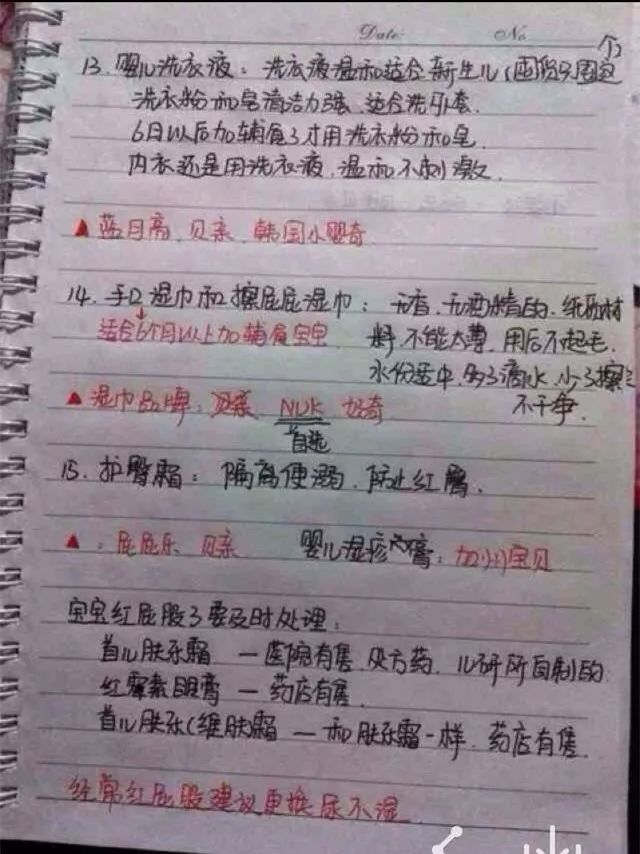 Date: No
个2
13. 婴儿洗衣液：洗衣液温和适合新生儿
洗衣粉和皂清洁力强、适合洗外套.
6月以后加辅食了才用洗衣粉和皂.
内衣还是用洗衣液、温和不刺激.
▲ 蓝月亮、贝亲、韩国小婴奇
14. 手口湿巾和擦屁屁湿巾：无香、无酒精的、纸质材
适合6个月以上加辅食宝宝 料、不能太薄、用后不起毛.
水份适中、多了滴水、少了擦
不干净.
▲ 湿巾品牌：贝亲 NUK 好奇
首选
15. 护臀霜：隔离便溺、防止红臀.
▲：屁屁乐 贝亲 婴儿湿疹膏：加州宝贝
宝宝红屁股了要及时处理：
首儿肤乐霜 — 医院有售、处方药、儿研所自制的
红霉素眼膏 — 药店有售.
首儿肤乐(维肤霜 — 和肤乐霜一样、药店有售.
经常红屁股建议更换尿不湿